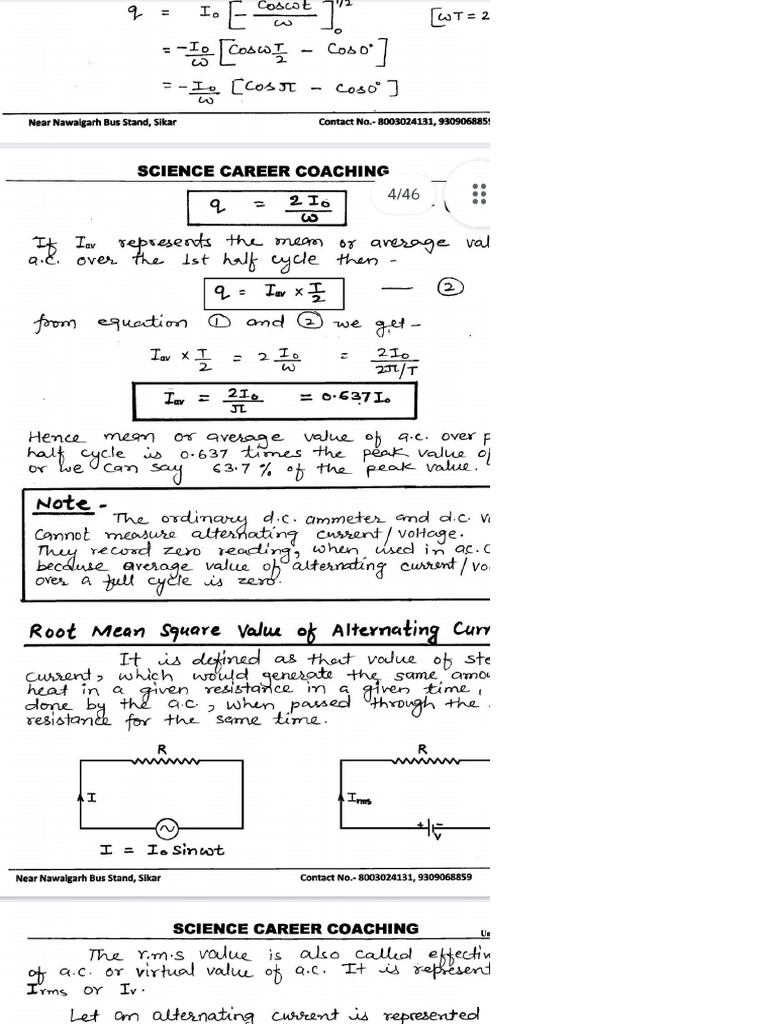 q = I₀ [ - Cosωt / ω ]₀^T/2 [ωT = 2
= -I₀/ω [Cosω T/2 - Cos0°]
= -I₀/ω [Cosπ - Cos0°]
Near Nawalgarh Bus Stand, Sikar Contact No.- 8003024131, 930906885
SCIENCE CAREER COACHING
4/46
q = 2I₀/ω
If Iav represents the mean or average val
a.c. over the 1st half cycle then -
q = Iav × T/2 — ②
from equation ① and ② we get -
Iav × T/2 = 2 I₀/ω = 2I₀ / 2π/T
Iav = 2I₀/π = 0.637 I₀
Hence mean or average value of a.c. over p
half cycle is 0.637 times the peak value of
or we can say 63.7 % of the peak value.
Note -
The ordinary d.c. ammeter and d.c. v
Cannot measure alternating current/voltage.
They record zero reading, when used in a.c. c
because average value of alternating current/vo
over a full cycle is zero.
Root Mean Square Value of Alternating Curr
It is defined as that value of ste
current, which would generate the same amou
heat in a given resistance in a given time,
done by the a.c., when passed through the
resistance for the same time.
R R
I Irms
+ - V
I = I₀ Sinωt
Near Nawalgarh Bus Stand, Sikar Contact No.- 8003024131, 9309068859
SCIENCE CAREER COACHING
The r.m.s value is also called effectiv
of a.c. or virtual value of a.c. It is represent
Irms or Iv.
Let an alternating current is represented